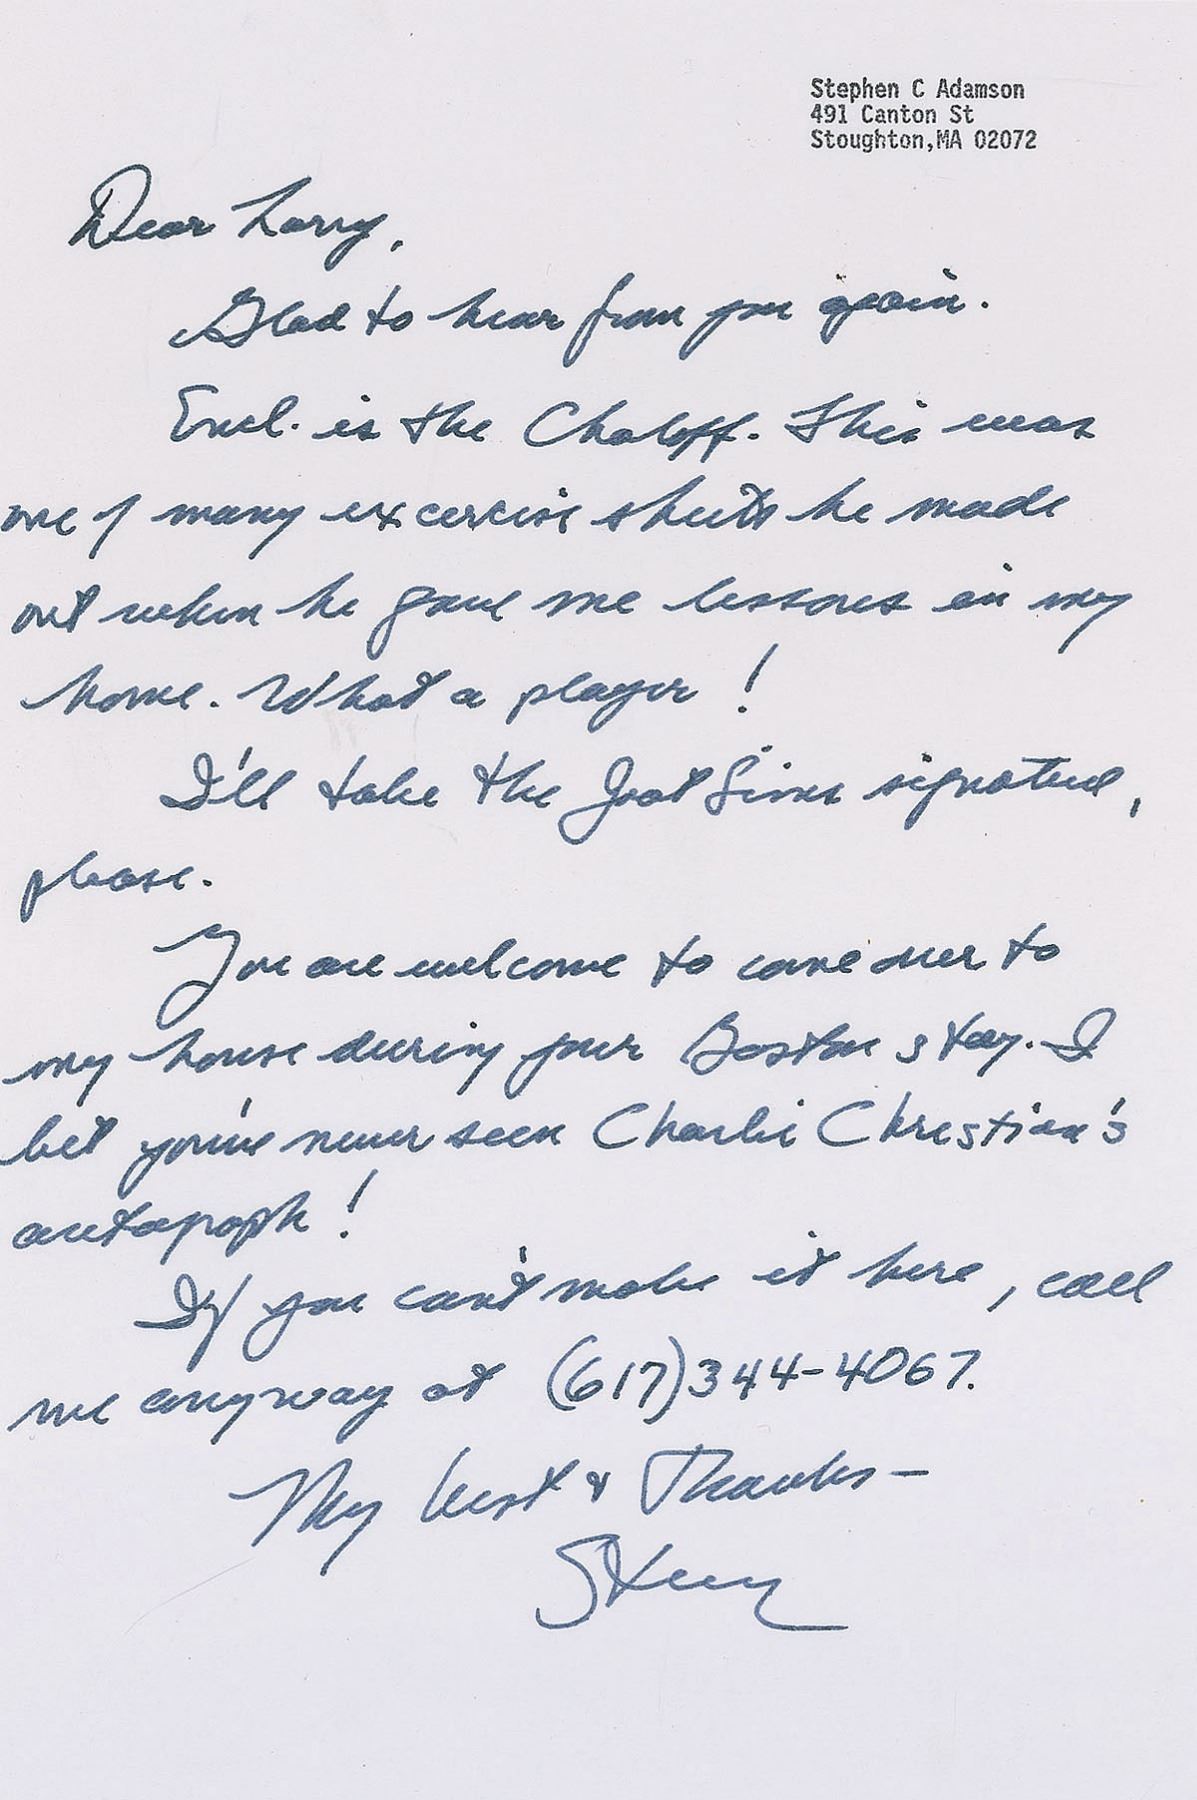 Stephen C Adamson
491 Canton St
Stoughton,MA 02072
Dear Larry,
Glad to hear from you again.
Encl. is the Chaloff. This was
one of many excercise sheets he made
out when he gave me lessons in my
home. What a player!
I'll take the Zoot Sims signature,
please.
You are welcome to come over to
my house during your Boston stay. I
bet you've never seen Charlie Christian's
autograph!
If you can't make it here, call
me anyway at (617)344-4067.
My best & Thanks—
Steve